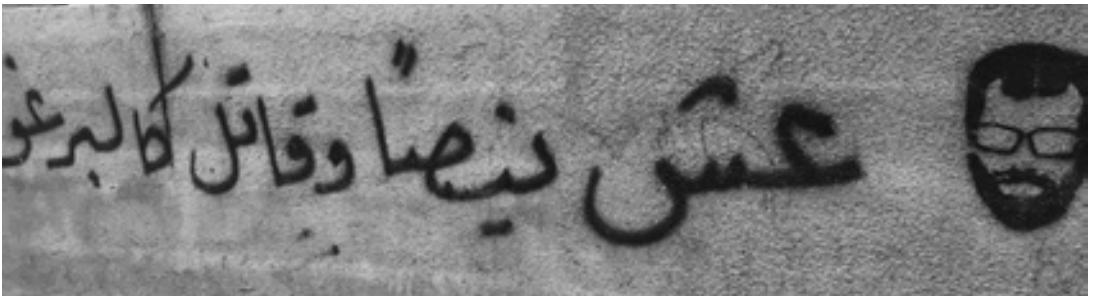 عش نيصًا وقاتل كالبرغو